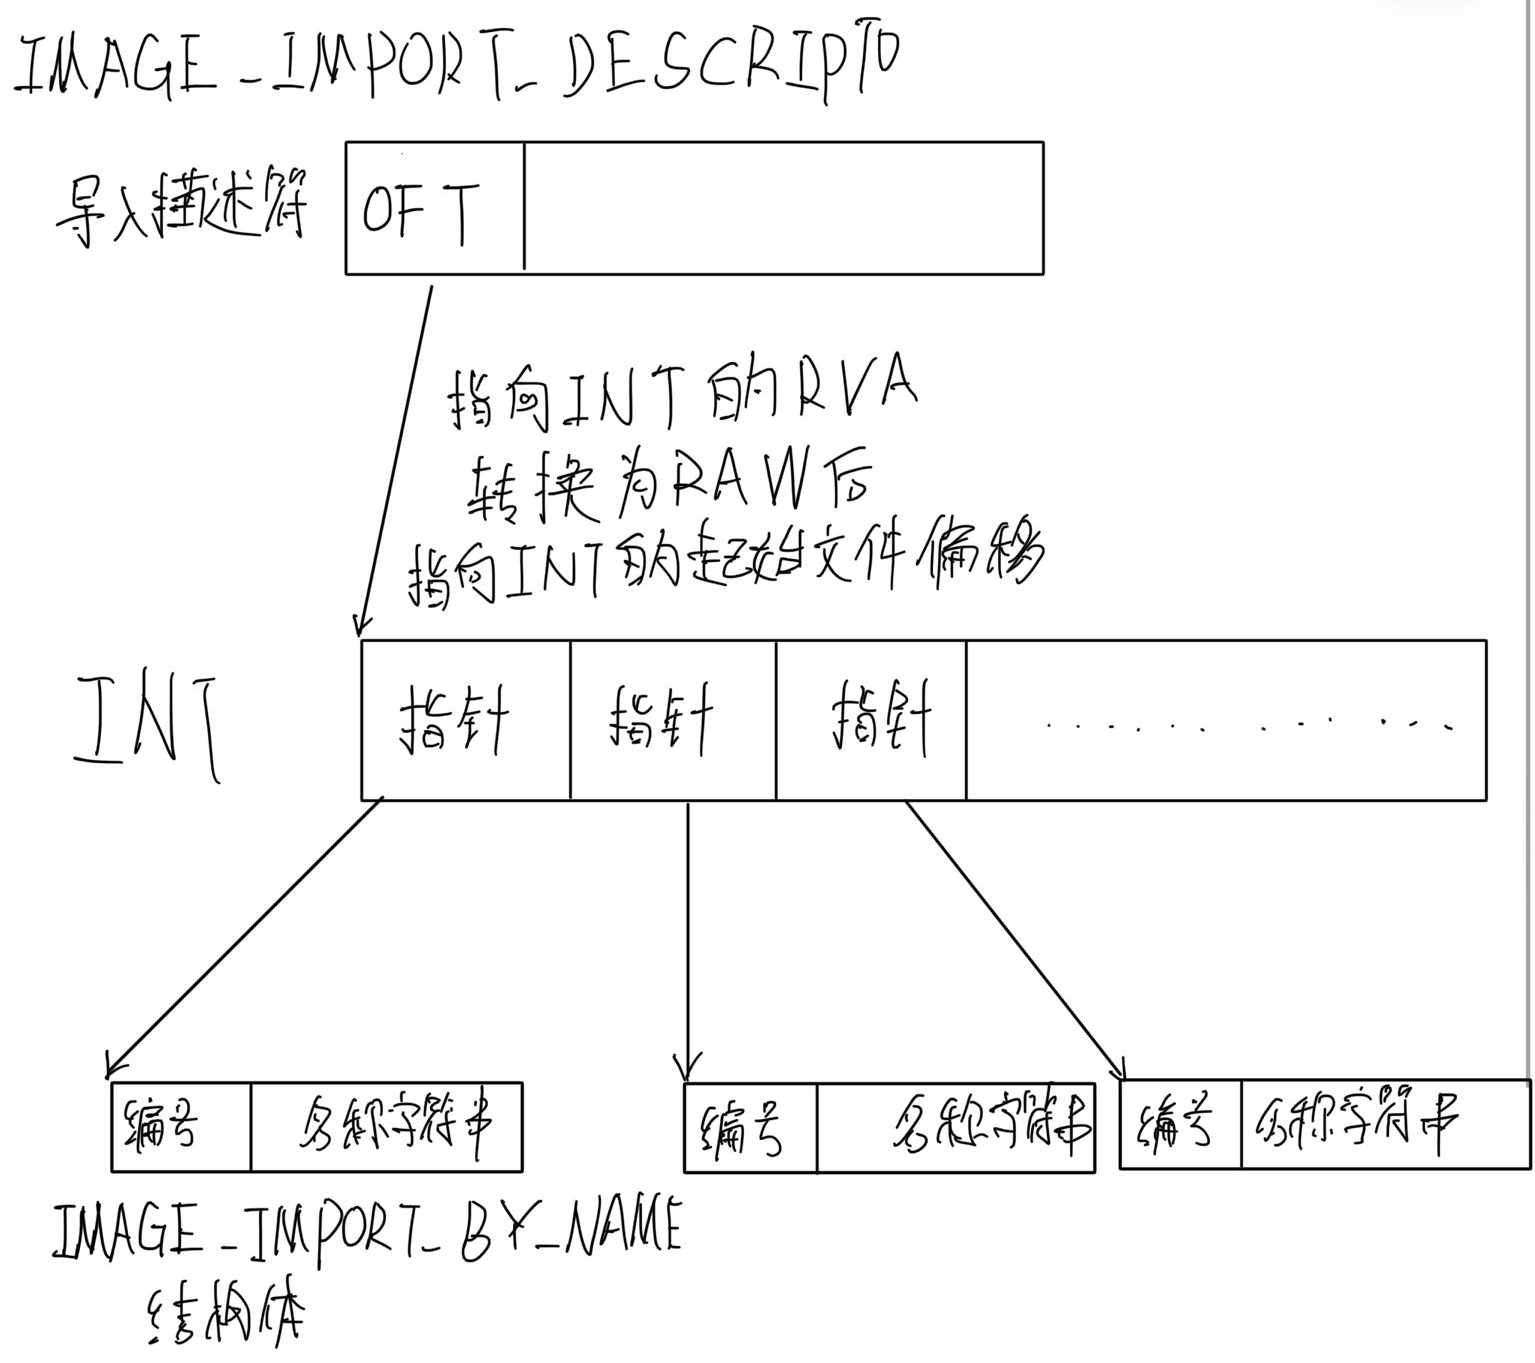 IMAGE_IMPORT_DESCRIPTO
导入描述符 OFT
指向INT的RVA
转换为RAW后
指向INT的起始文件偏移
INT 指针 指针 指针 ..............
编号 名称字符串 编号 名称字符串 编号 名称字符串
IMAGE_IMPORT_BY_NAME
结构体